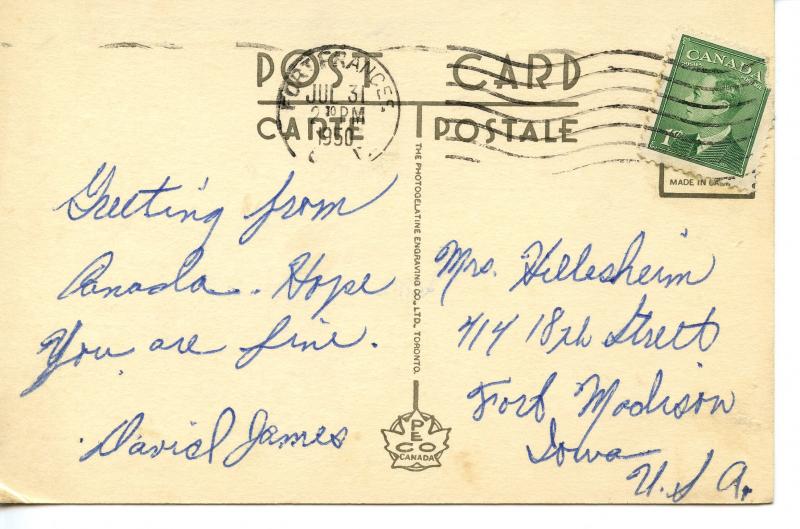 POST CARD
CARTE POSTALE
FORT FRANCES
JUL 31
2 30 PM
1950
CANADA
1¢
MADE IN
Greeting from
Canada. Hope
You are fine.
David James
THE PHOTOGELATINE ENGRAVING CO., LTD. TORONTO.
PECO
CANADA
Mrs. Hillesheim
414 18th Street
Fort Madison
Iowa
U.S.A.